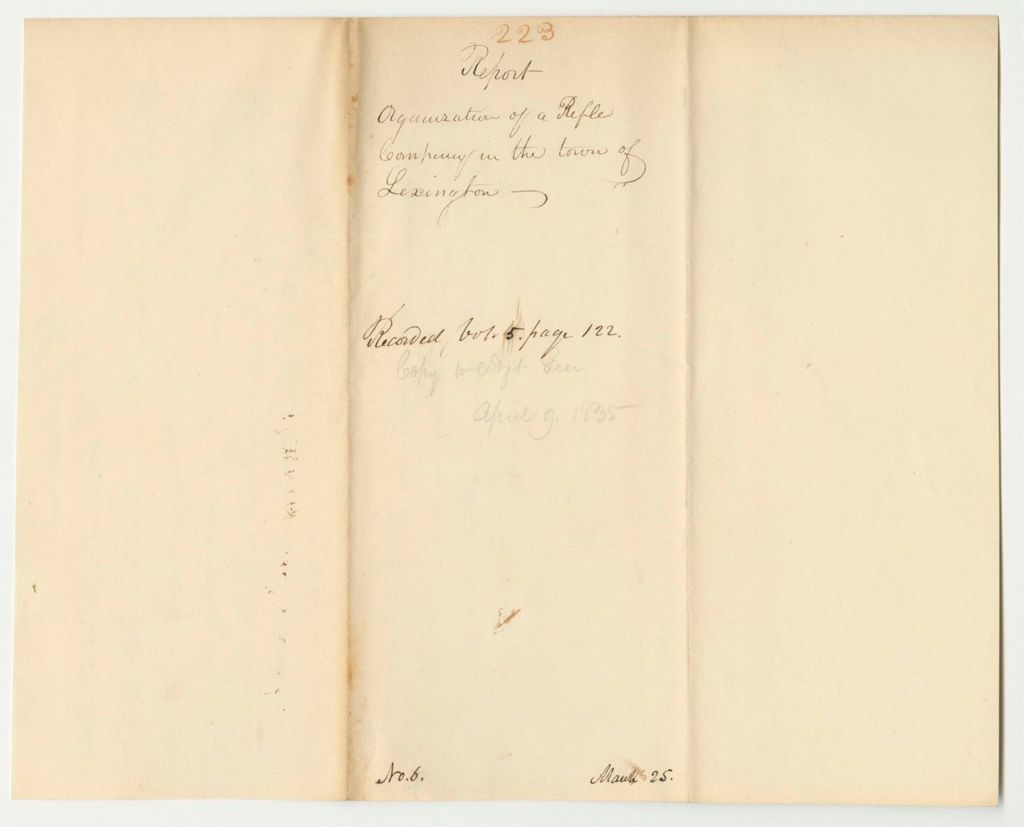 223
Report
Organization of a Rifle
Company in the town of
Lexington —
Recorded, Vol. 5. page 122.
Copy to Adjt Gen
April 9. 1835
No. 6.
March 25.